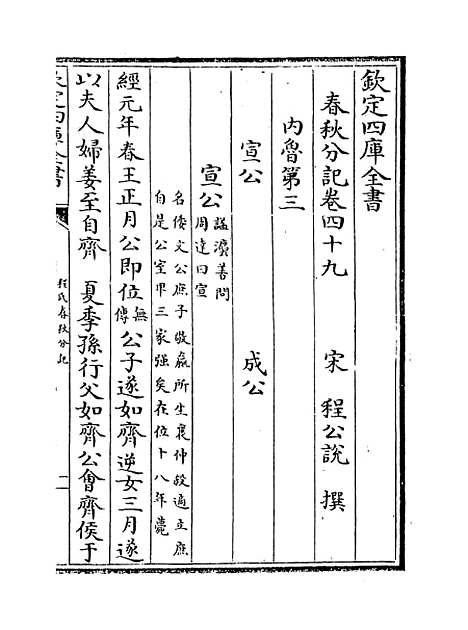 欽定四庫全書
春秋分記卷四十九　宋　程公說　撰
內魯第三
宣公　成公
宣公 諡灋善問
周達曰宣
名倭文公庶子敬嬴所生襄仲殺適立庶
自是公室卑三家强矣在位十八年薨
經元年春王正月公即位 無
傳 公子遂如齊逆女三月遂
以夫人婦姜至自齊　夏季孫行父如齊公會齊侯于
欽定四庫全書
程氏春秋分記
一